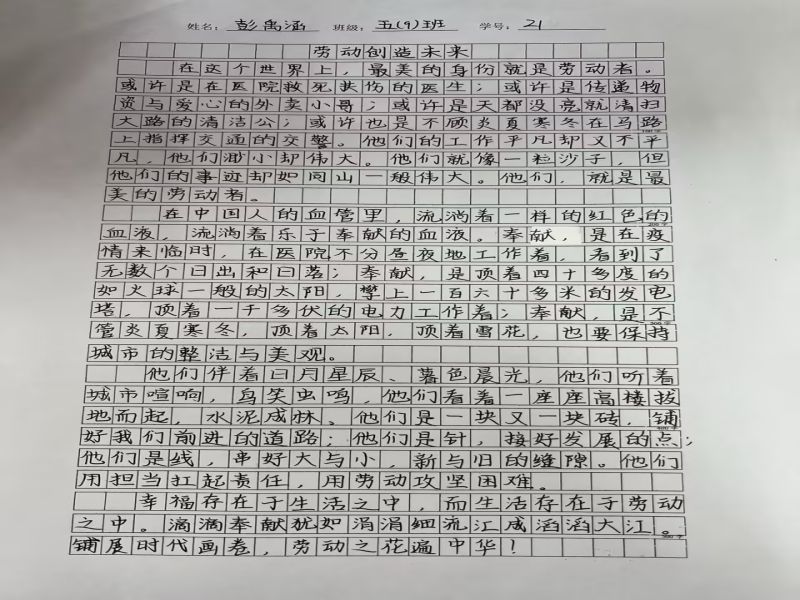 姓名：彭禹涵 班级：五(9)班 学号：21
劳动创造未来
在这个世界上，最美的身份就是劳动者。
或许是在医院救死扶伤的医生；或许是传递物
资与爱心的外卖小哥；或许是天都没亮就清扫
大路的清洁公；或许也是不顾炎夏寒冬在马路
上指挥交通的交警。他们的工作平凡却又不平
凡，他们渺小却伟大。他们就像一粒沙子，但
他们的事迹却如同山一般伟大。他们，就是最
美的劳动者。
在中国人的血管里，流淌着一样的红色的
血液，流淌着乐于奉献的血液。奉献，是在疫
情来临时，在医院不分昼夜地工作着，看到了
无数个日出和日落；奉献，是顶着四十多度的
如火球一般的太阳，攀上一百六十多米的发电
塔，顶着一千多伏的电力工作着；奉献，是不
管炎夏寒冬，顶着太阳，顶着雪花，也要保持
城市的整洁与美观。
他们伴着日月星辰、暮色晨光，他们听着
城市喧响，鸟笑虫鸣，他们看着一座座高楼拔
地而起，水泥成林。他们是一块又一块砖，铺
好我们前进的道路；他们是针，接好发展的点；
他们是线，串好大与小，新与旧的缝隙。他们
用担当扛起责任，用劳动攻坚困难。
幸福存在于生活之中，而生活存在于劳动
之中。滴滴奉献犹如涓涓细流汇成滔滔大江。
铺展时代画卷，劳动之花遍中华！